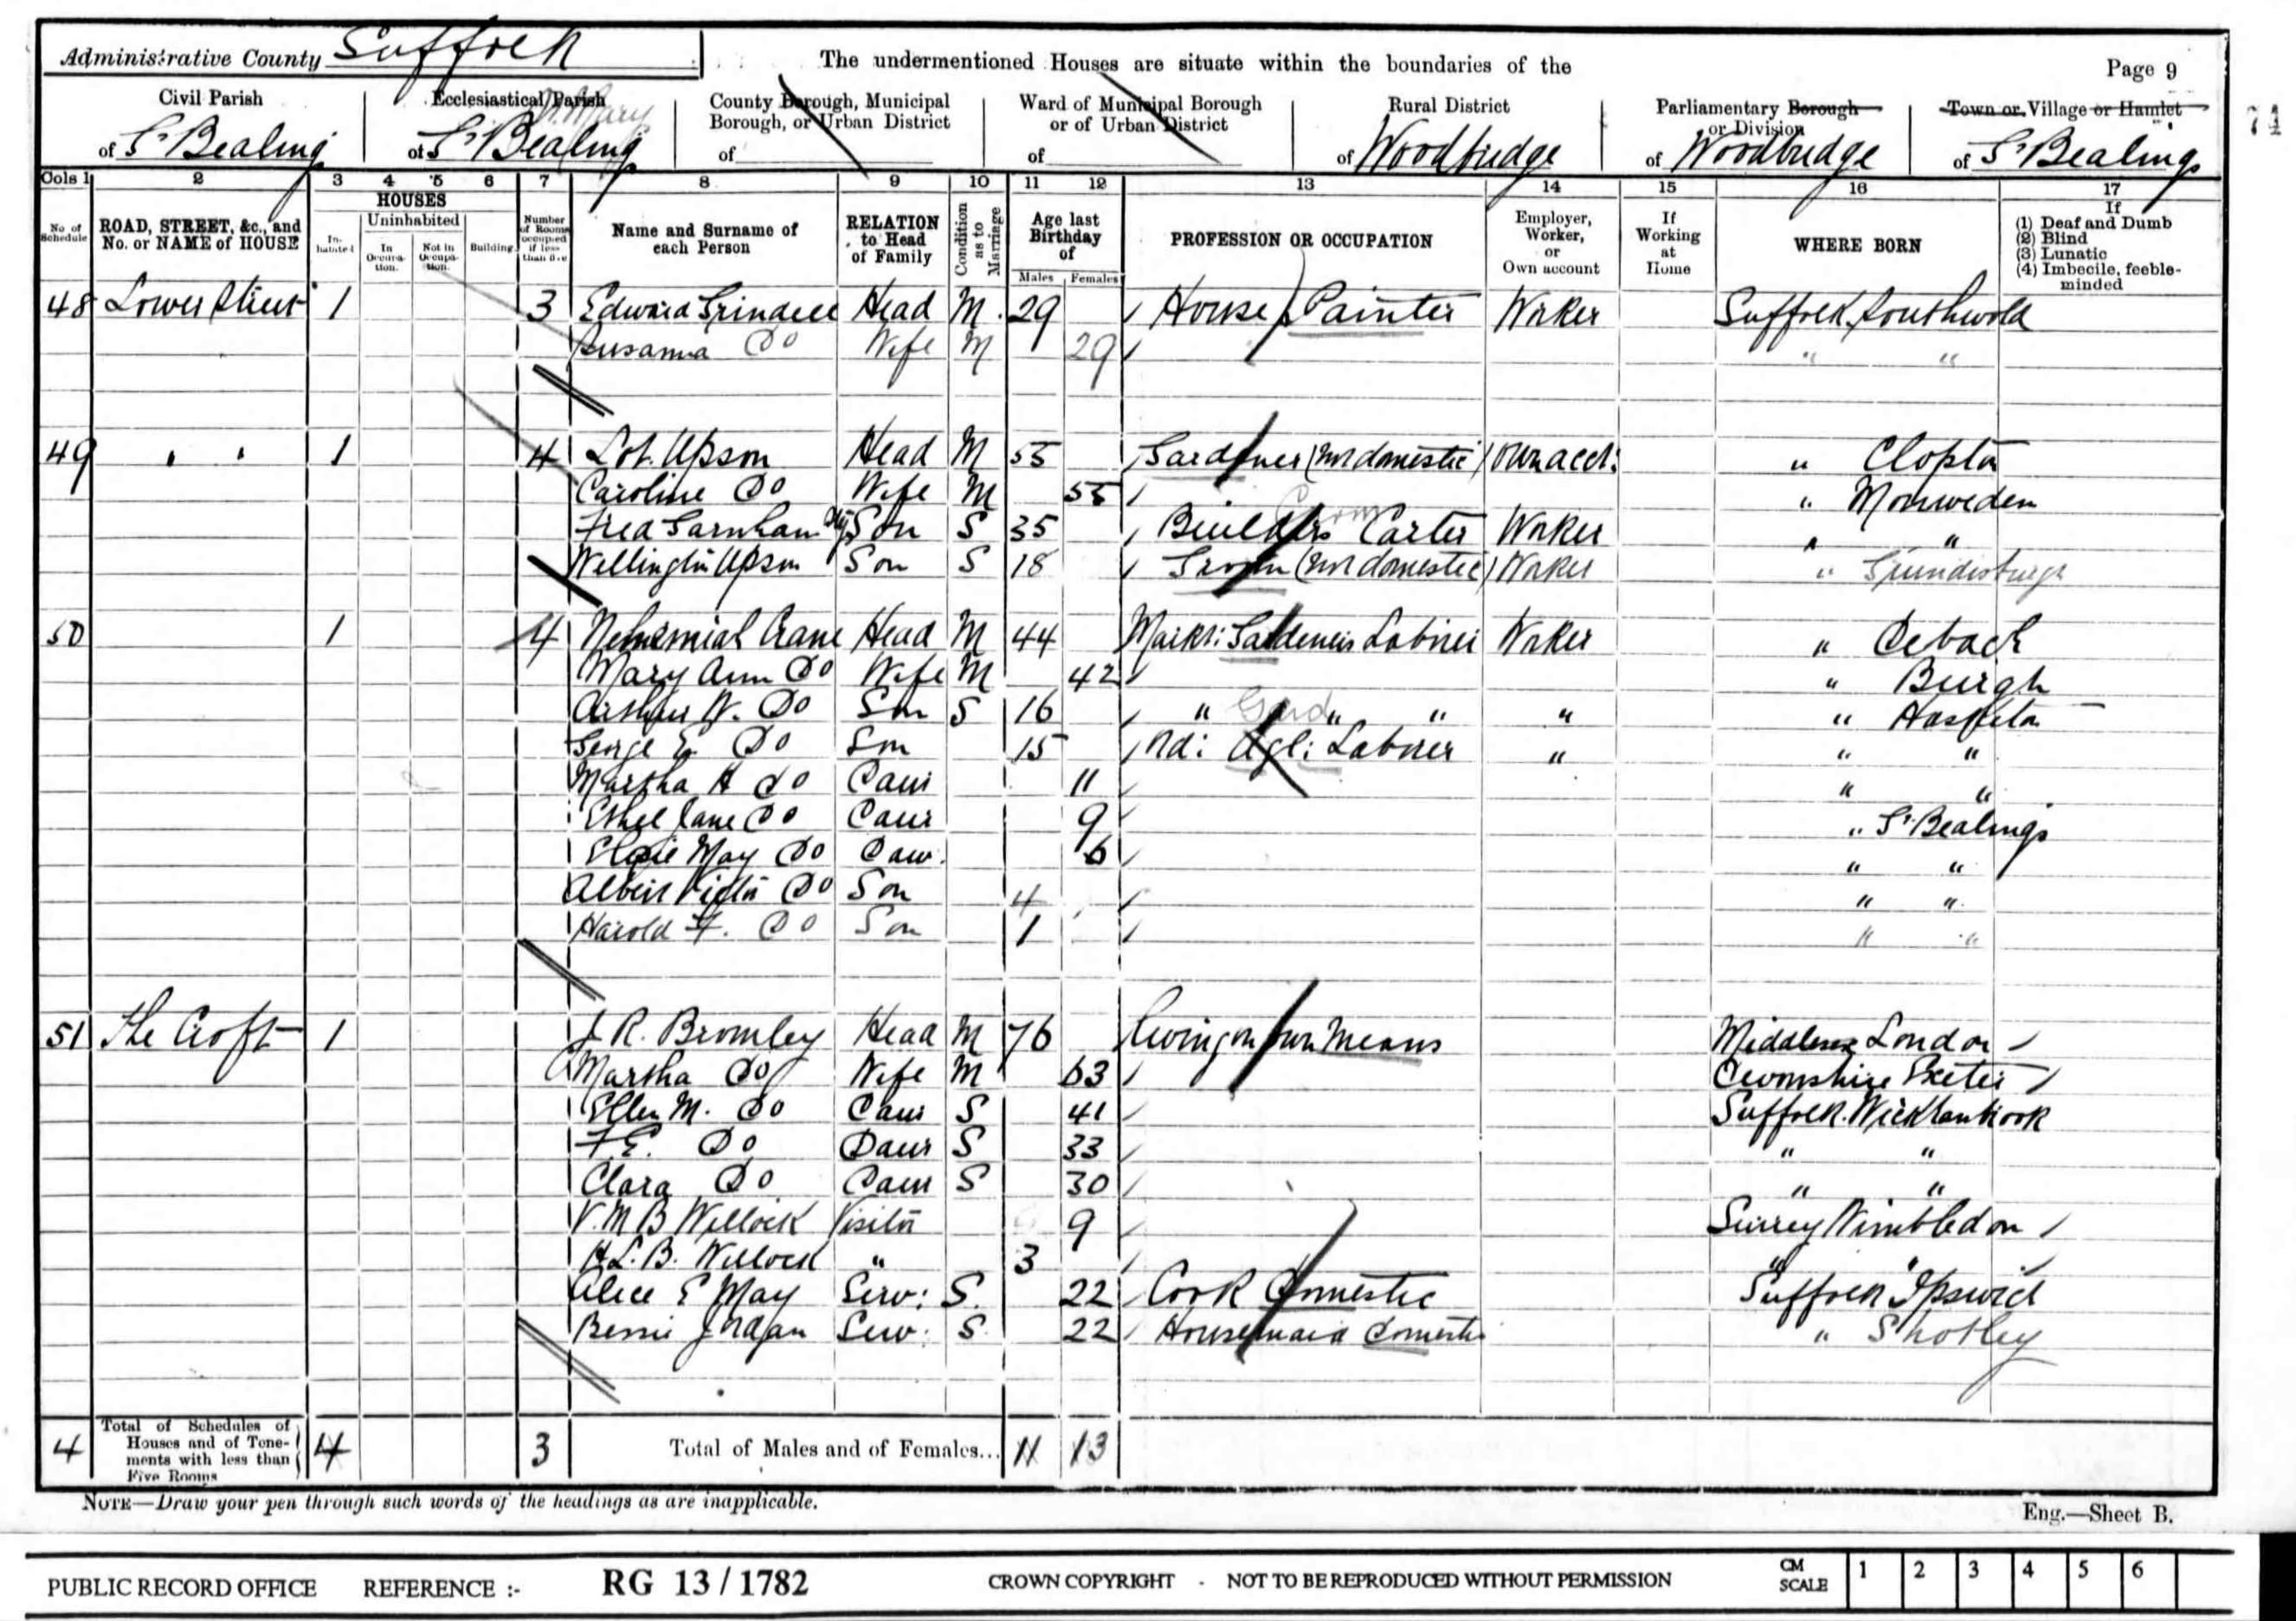 Administrative County Suffolk The undermentioned Houses are situate within the boundaries of the Page 9
Civil Parish Ecclesiastical Parish County Borough, Municipal Borough, or Urban District Ward of Municipal Borough or of Urban District Rural District Parliamentary Borough or Division Town or Village or Hamlet
of St Bealing of St Bealing St Mary of of of Woodbridge of Woodbridge of St Bealings
71
Cols 1 2 3 4 5 6 7 8 9 10 11 12 13 14 15 16 17
No of Schedule ROAD, STREET, &c., and No. or NAME of HOUSE HOUSES Inhabited Uninhabited In Occupation. Not in Occupation. Building Number of Rooms occupied if less than five Name and Surname of each Person RELATION to Head of Family Condition as to Marriage Age last Birthday of Males Females PROFESSION OR OCCUPATION Employer, Worker, or Own account If Working at Home WHERE BORN If (1) Deaf and Dumb (2) Blind (3) Lunatic (4) Imbecile, feeble-minded
48 Lower Street 1 3 Edward Grindell Head M 29 House Painter Worker Suffolk Southwold
Susanna Do Wife M 29 " "
49 " " 1 4 Lot Upson Head M 55 Gardener (not domestic) Own acct: " Clopton
Caroline Do Wife M 55 " Monweden
Fred Garnham Son S 35 Builders Carter Worker " "
Wellington Upson Son S 18 Groom (not domestic) Worker " Grundisburgh
50 1 4 Nehemiah Crane Head M 44 Markt: Gardeners Labourer Worker " Debach
Mary Ann Do Wife M 42 " Burgh
Arthur W. Do Son S 16 " Gard " " " " Hasketon
George E. Do Son 15 Ord: Agl: Labourer " " "
Martha A Do Daur 11 " "
Ethel Jane Do Daur 9 " St Bealings
Elsie May Do Daur. 6 " "
Albert Victor Do Son 4 " "
Harold F. Do Son 1 " "
51 The Croft 1 J R. Bromley Head M 76 Living on own Means Middlesex London
Martha Do Wife M 63 Devonshire Exeter
Ellen M. Do Daur S 41 Suffolk. Wickhambrook
F. E. Do Daur S 33 " "
Clara Do Daur S 30 " "
V. M B Willock Visitor 9 Surrey Wimbledon
H. L. B. Willock " 3 " "
Alice E May Serv: S. 22 Cook Domestic Suffolk Ipswich
Bessie Jordan Serv: S. 22 Housemaid Domestic " Shotley
4 Total of Schedules of Houses and of Tenements with less than Five Rooms 4 3 Total of Males and of Females... 11 13
NOTE—Draw your pen through such words of the headings as are inapplicable.
Eng.—Sheet B.
PUBLIC RECORD OFFICE REFERENCE :- RG 13 / 1782 CROWN COPYRIGHT - NOT TO BE REPRODUCED WITHOUT PERMISSION CM SCALE 1 2 3 4 5 6